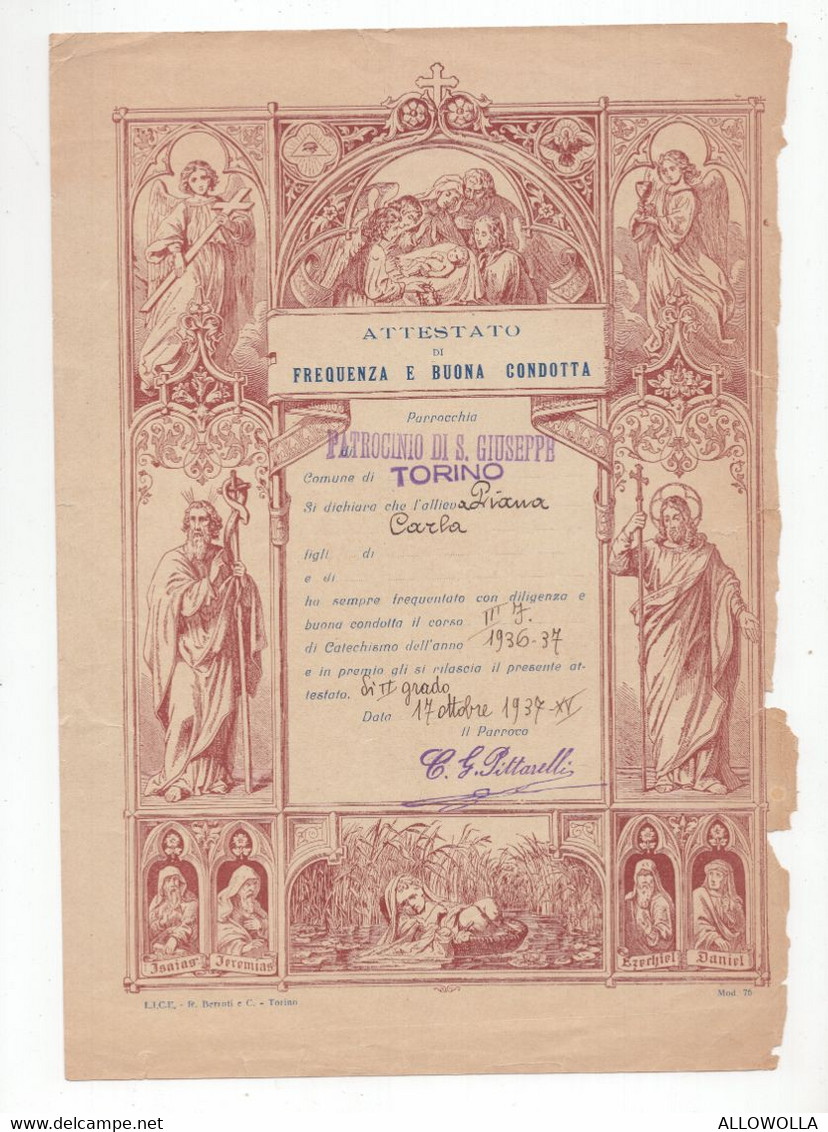 ATTESTATO
DI
FREQUENZA E BUONA CONDOTTA
Parrocchia
PATROCINIO DI S. GIUSEPPE
Comune di TORINO
Si dichiara che l'allieva Piana
Carla
figli di
e di
ha sempre frequentato con diligenza e
buona condotta il corso III J.
di Catechismo dell'anno 1936-37
e in premio gli si rilascia il presente at-
testato. di II grado
Data 17 ottobre 1937-XV
Il Parroco
C. G. Pittarelli
Isaias Jeremias Ezechiel Daniel
L.I.C.E. - R. Berruti e C. - Torino
Mod. 76
www.delcampe.net
ALLOWOLLA